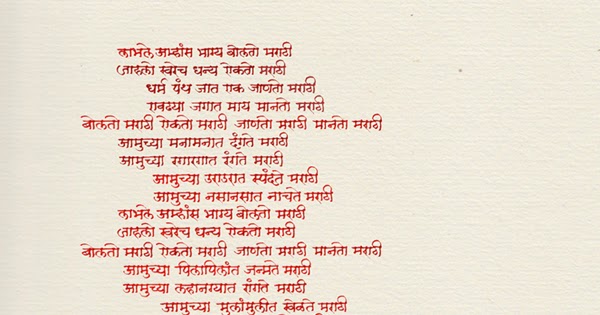 लाभले अम्हांस भाग्य बोलतो मराठी
जाहलो खरेच धन्य ऐकतो मराठी
धर्म पंथ जात एक जाणतो मराठी
एवढ्या जगात माय मानतो मराठी
बोलतो मराठी ऐकतो मराठी जाणतो मराठी मानतो मराठी
आमुच्या मनामनात दंगते मराठी
आमुच्या रगारगात रंगते मराठी
आमुच्या उराउरात स्पंदते मराठी
आमुच्या नसानसात नाचते मराठी
लाभले अम्हांस भाग्य बोलतो मराठी
जाहलो खरेच धन्य ऐकतो मराठी
बोलतो मराठी ऐकतो मराठी जाणतो मराठी मानतो मराठी
आमुच्या पिलापिलांत जन्मते मराठी
आमुच्या लहानग्यात रांगते मराठी
आमुच्या मुलांमुलीत खेळते मराठी